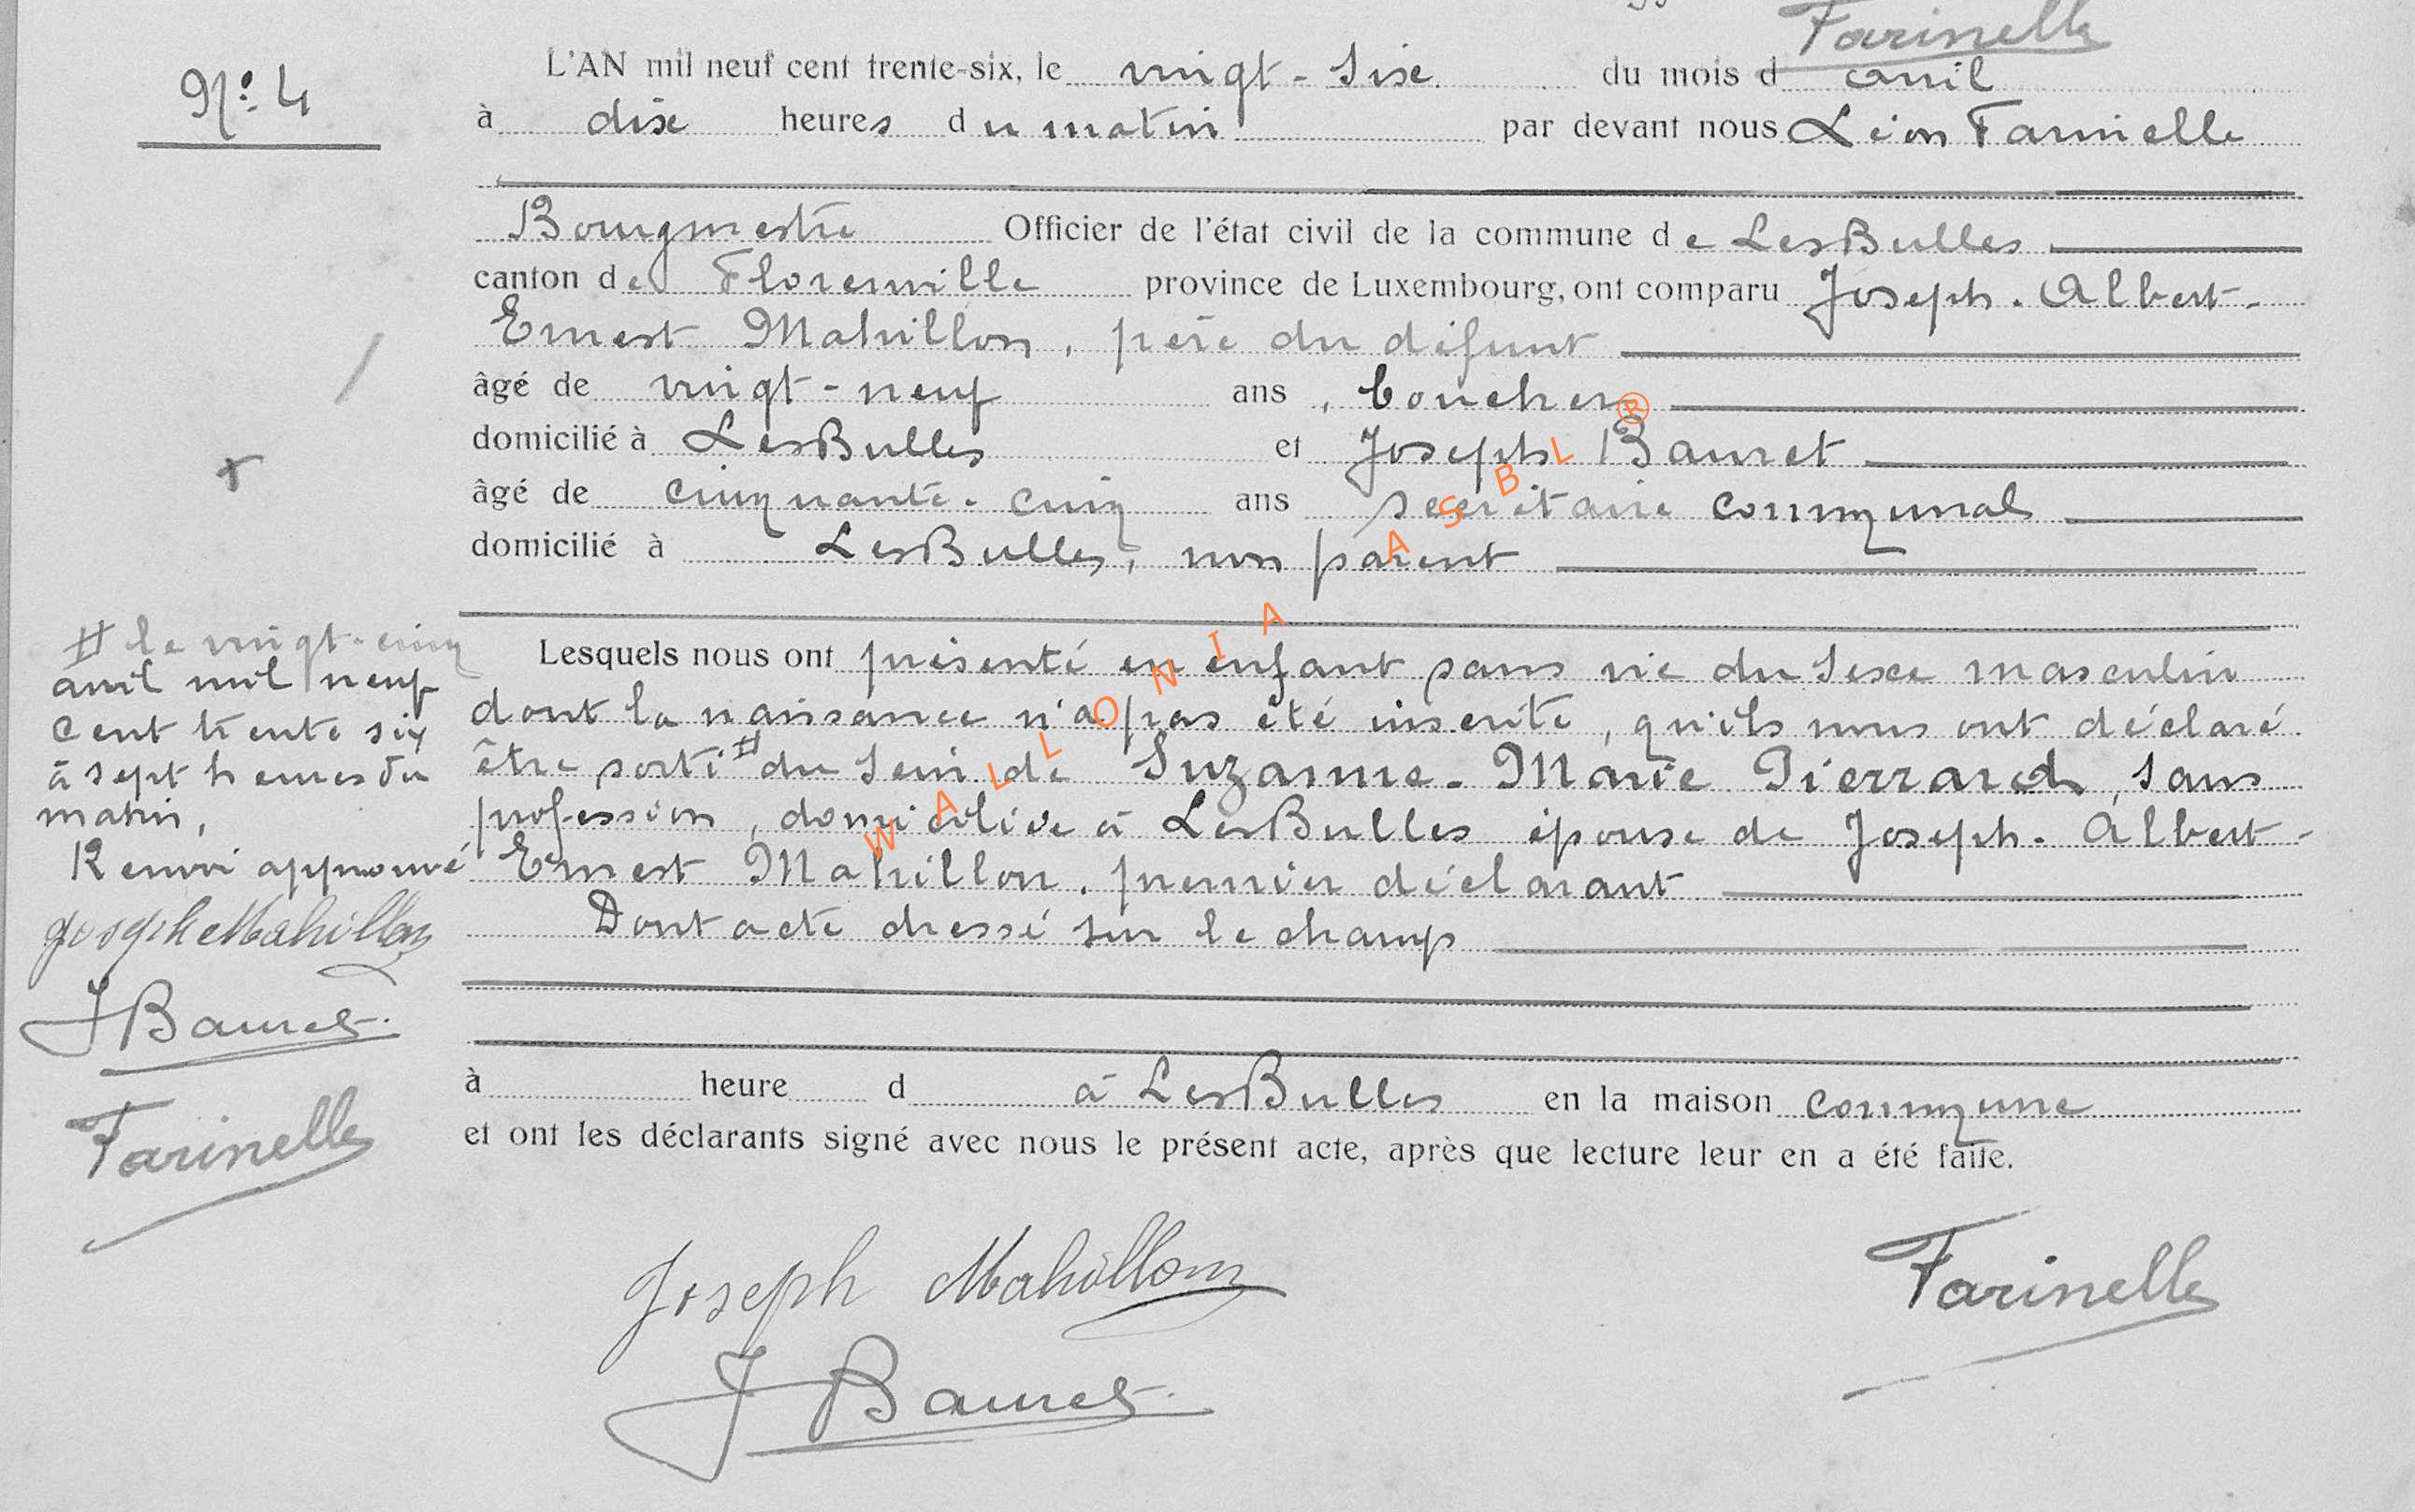 Farinelle
N° 4
L'AN mil neuf cent trente-six, le vingt-six du mois d avril
à dix heures du matin par devant nous Léon Farinelle
Bourgmestre Officier de l'état civil de la commune de LesBulles
canton de Florenville province de Luxembourg, ont comparu Joseph-Albert-
Ernest Mahillon, père du défunt
âgé de vingt-neuf ans, boucher
domicilié à LesBulles et Joseph Bauret
âgé de cinquante-cinq ans secrétaire communal
domicilié à LesBulles, non parent
Lesquels nous ont présenté un enfant sans vie du sexe masculin
dont la naissance n'a pas été inscrite, qu'ils nous ont déclaré
être sorti # du sein de Suzanne-Marie Pierrard, sans
profession, domiciliée à LesBulles épouse de Joseph-Albert-
Ernest Mahillon, premier déclarant
Dont acte dressé sur le champ
à heure d à LesBulles en la maison commune
et ont les déclarants signé avec nous le présent acte, après que lecture leur en a été faite.
# le vingt-cinq
avril mil neuf
cent trente six
à sept heures du
matin,
Renvoi approuvé
Joseph Mahillon
J Bauret
Farinelle
Joseph Mahillon
Farinelle
J Bauret
WALLONIA ASBL®